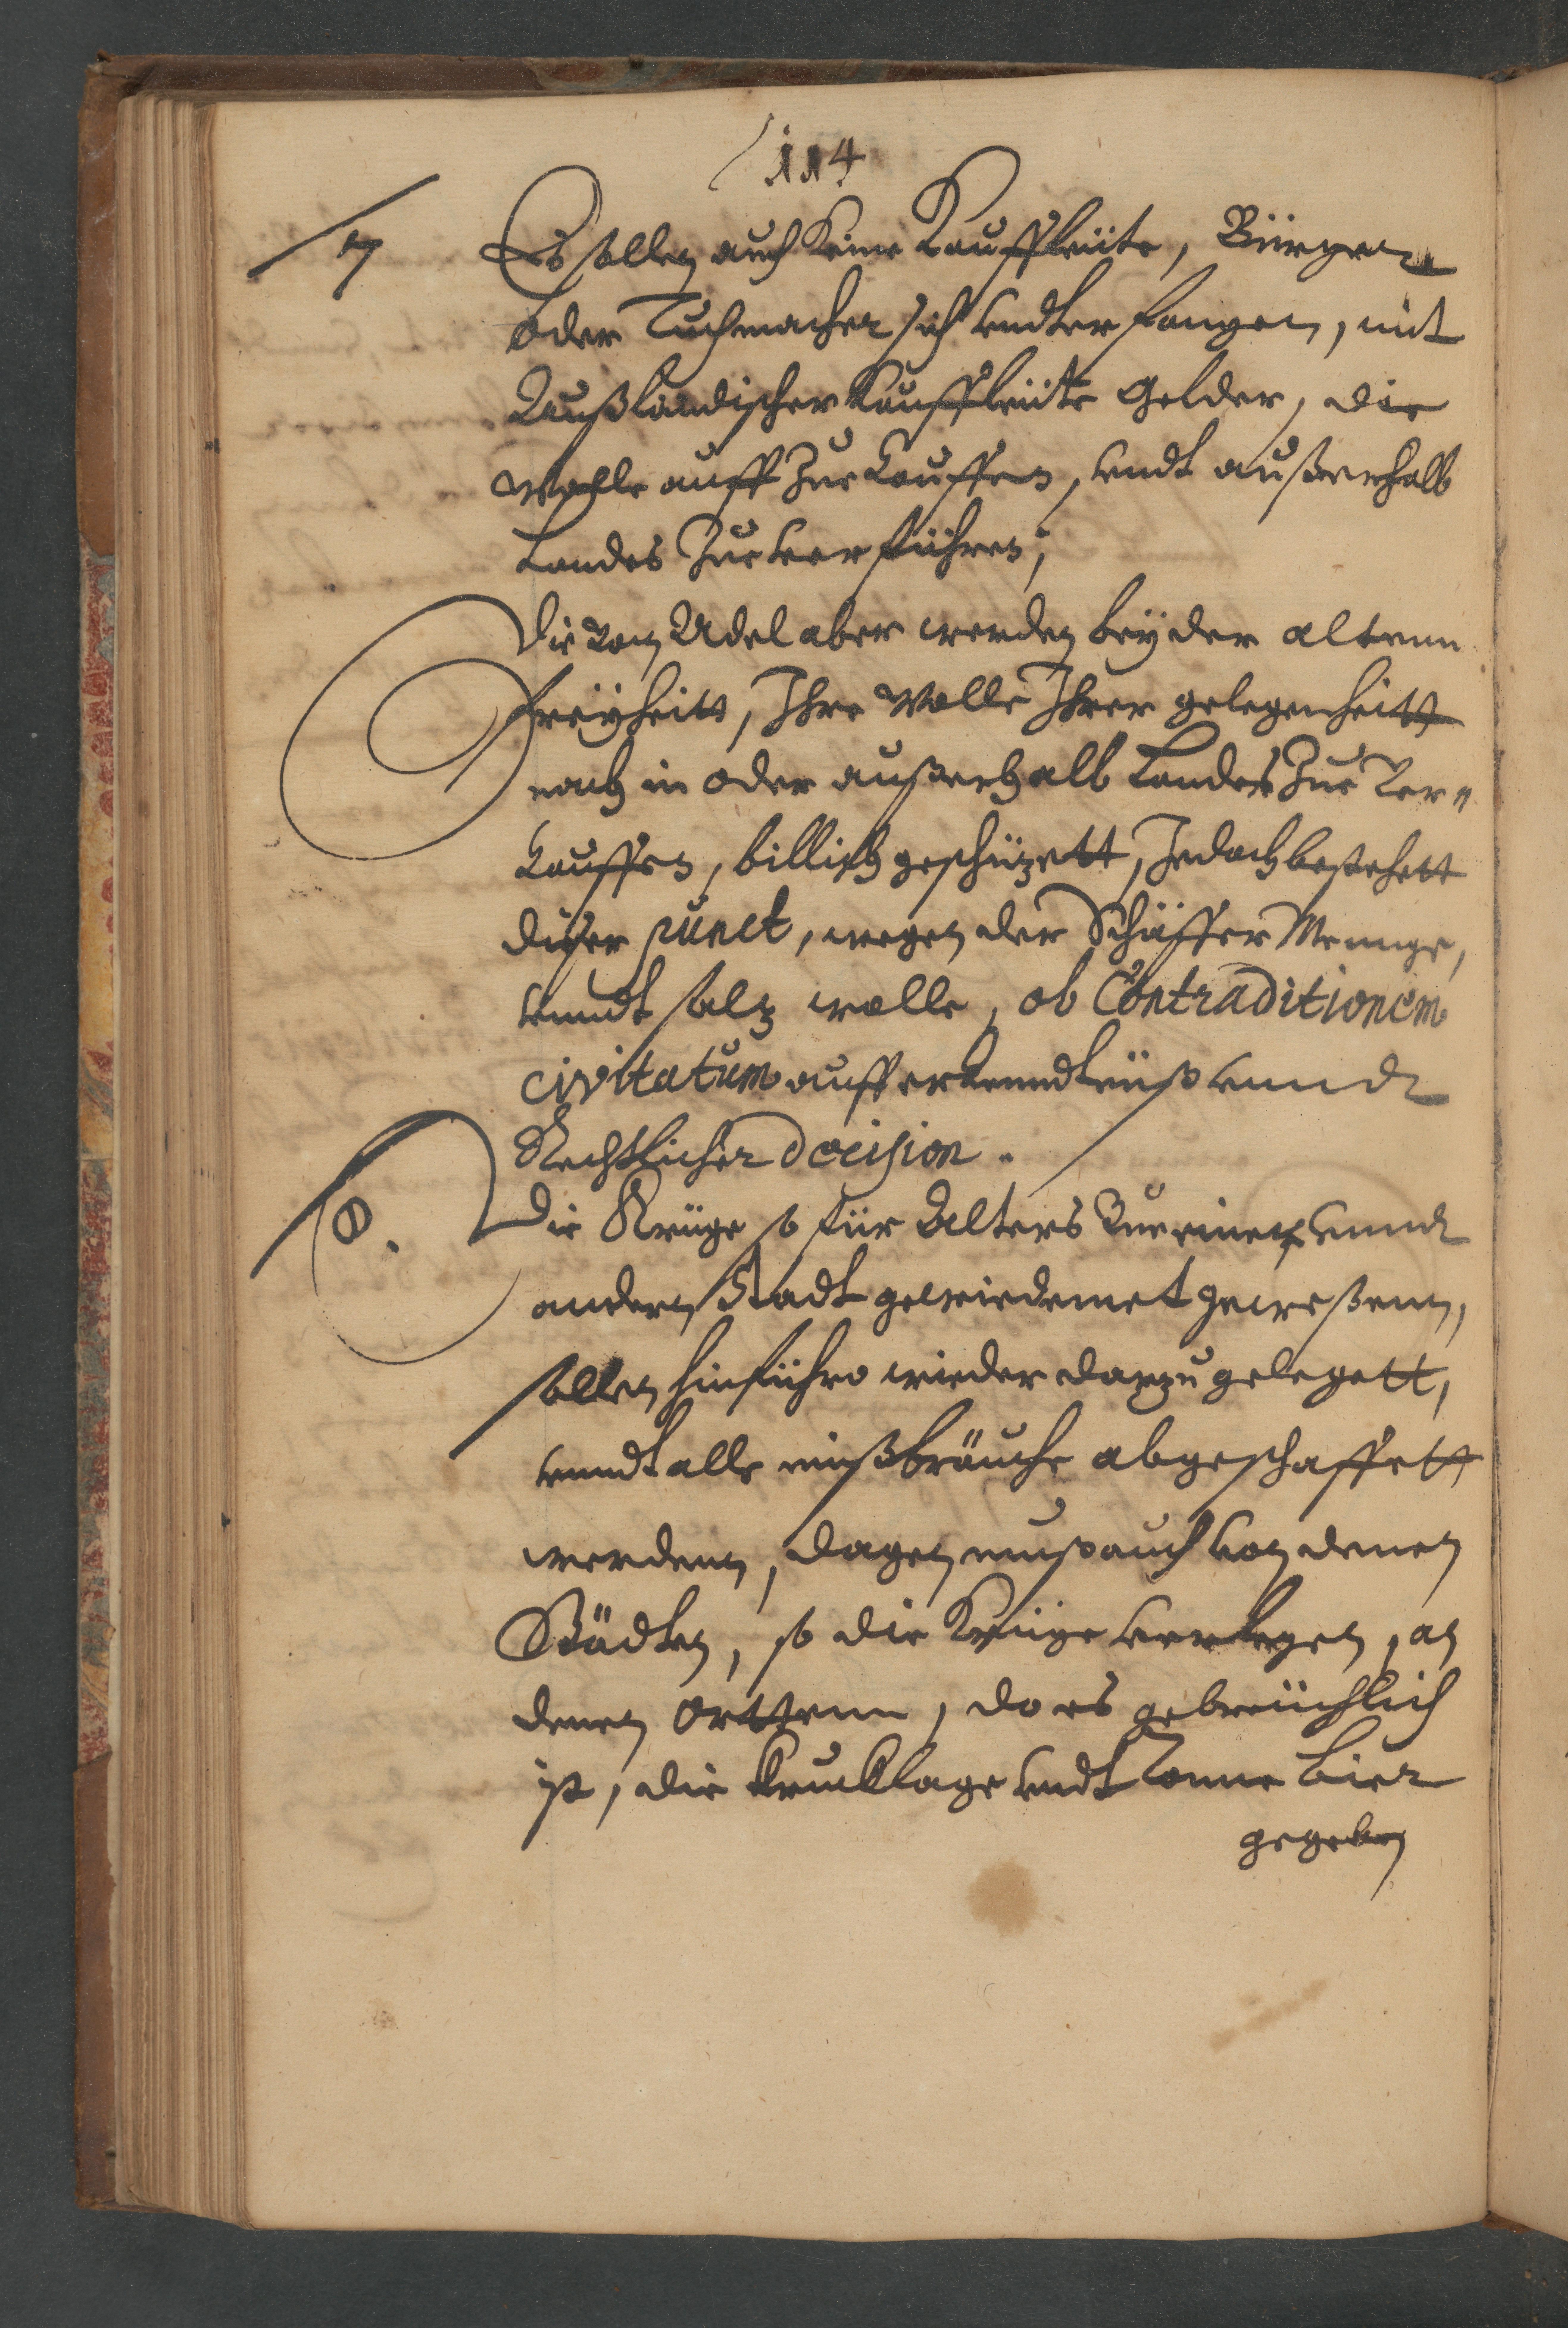 114
7 Es sollen auch Keine Kauffleüte, Bürger
oder Tuchmacher sich undterfangen, mit
Außländischer Kauffleüte Gelder, die
Wolle auff Zue Kauffen, undt außerhalb
Landes Zue verführen;
Die von Adel aber werden bey der altenn
freyheitt, Ihre Wolle Ihrer gelegenheitt
nach in oder außerhalb Landes Zue ver"
Kauffen, billich geschüzett, Jedoch bestehett
diser punct, wegen der Schäffer Menge,
unndt wolle, ob Contraditionem
civitatum auff erkenndtnüß unnd
Rechtlicher decision.
8. Die Krüge so für Alters Zue einer unnd
andern Stadt gewiedemet geweßenn,
sollen hinführo wieder darzu gelegett,
unndt alle mißbräuche abgeschaffett
werdenn, dagegen muß auch von denen
Städten, so die Krüge verlegen, an
denen Orttenn, do es gebreüchlich
ist, die undt Tonne bier
gegeben